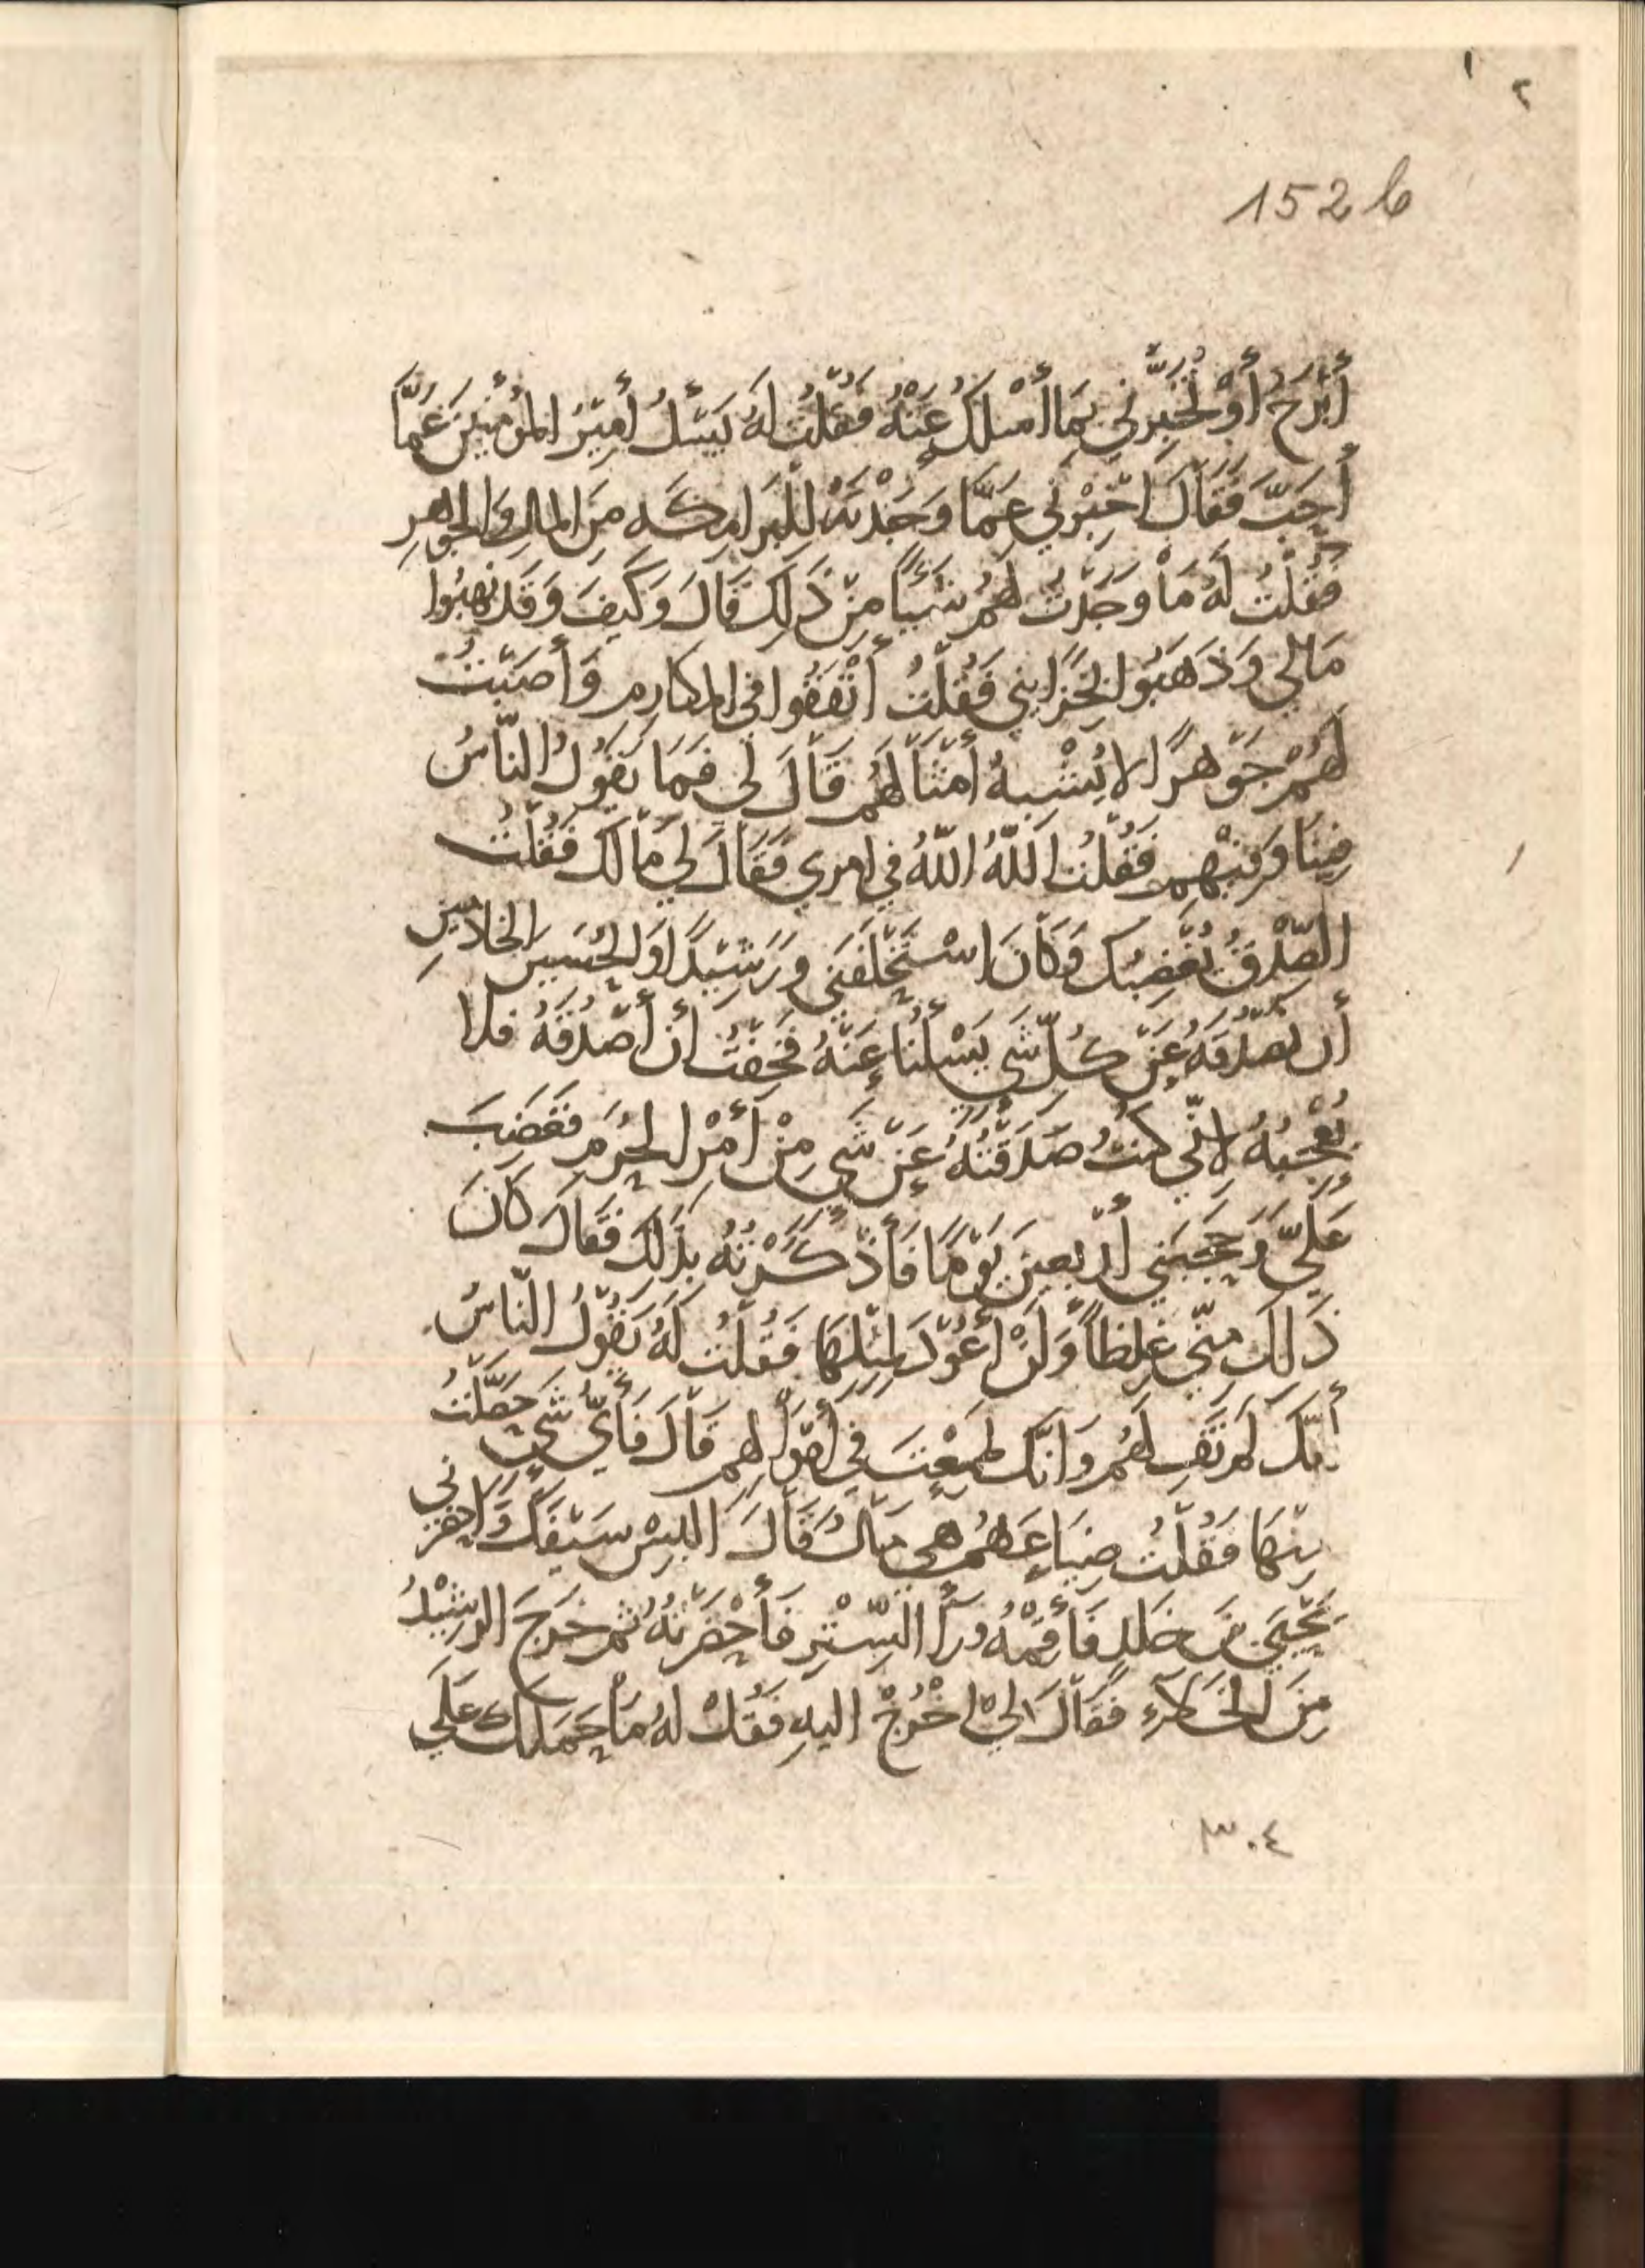 ١ ٢
152 b
أَبْرَحُ أَوْ تُخْبِرَنِّي بِمَا أَسْلُكَ عَنْهُ فَقُلْتُ لَهُ يَسْأَلُ أَمِيْرُ المُؤْمِنِيْنَ عَمَّا
أَحَبَّ فَقَالَ أَخْبِرْنِي عَمَّا وَجَدْتَهُ لِلْبَرَامِكَه مِنَ المَالِ وَالجَوْهَرِ
فَقُلْتُ لَهُ مَا وَجَدْتُ لَهُمْ شَيْئًا مِنْ ذَلِكَ قَالَ وَكَيْفَ وَقَدْ نَهَبُوا
مَالِي وَذَهَبُوا بِخَزَايِنِي فَقُلْتُ أَنْفَقُوا فِي المَكَارِمِ وَأَصَبْتُ
لَهُمْ جَوْهَرًا لا يُشْبِهُ أَمْثَالَهُمْ قَالَ لِي فَمَا يَقُولُ النَّاسُ
فِيْنَا وَفِيْهِم فَقُلْتُ اللّهُ اللّهُ فِي امرِي فَقَالَ لِي مَا لَكَ فَقُلْتُ
الصِّدْقُ يُغْضِبُكَ وَكَانَ اسْتَحْلَفَنِي وَرَشِيْدًا وَالحُسَيْنَ الخَادِمَيْنِ
أَن نَصْدُقَهُ عَنْ كُلِّ شَي يَسْلُنَا عَنْهُ فَخِفْتُ أَنْ أَصْدُقَهُ فَلا
يُعْجِبُهُ لانِّي كُنْتُ صَدَقْتُهُ عَنْ شَيٍ مِنْ أَمْرِ الحُرَمِ فَغَضِبَ
عَلَيَّ وَحَجَبَنِي أَرْبَعِيْنَ يَوْمًا فَأَذْكَرْتُهُ بِذَلِكَ فَقَالَ كَانَ
ذَلِكَ مِنِّي غِلظاً وَلَنْ أَعُوْدَ لِمِثْلِهَا فَقُلْتُ لَهُ يَقُوْلُ النَّاسُ
أَنَّكَ لَمْ تَفِ لَهُمْ وَانَّكَ طَمِعْتَ فِي أَمْوَالِهِم قَالَ فَأَيَّ شَيٍ حَصَّلْتُ
مِنْهَا فَقُلْتُ ضِيَاعَهُمْ هِي مَالٌ قَالَ البِسْ سَيْفَكَ وَاحْضِرْنِي
يَحْيَى بْنَ خَلِدٍ فَأَقِمْهُ وَرَاَ السِّتْرِ فَأَحْضَرْتُهُ ثُمَّ خَرَجَ الرشِيْدُ
مِنَ الخَلَاءِ فَقَالَ لِيَ اخْرُجْ اليهِ فَقُلْ لَهُ مَا حَمَلَكَ عَلَي
٣٠٤